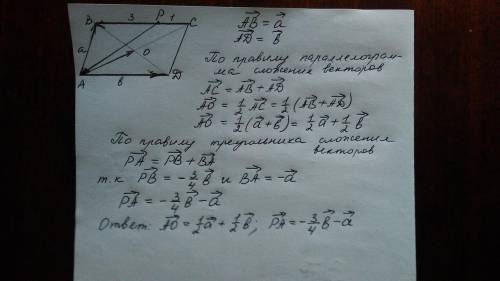 B 3 P 1 C
a O
A b D
AB⃗ = a⃗
AD⃗ = b⃗
По правилу параллелограм-
ма сложения векторов
AC⃗ = AB⃗ + AD⃗
AO⃗ = 1/2 AC⃗ = 1/2 (AB⃗ + AD⃗)
AO⃗ = 1/2 (a⃗ + b⃗) = 1/2 a⃗ + 1/2 b⃗
По правилу треугольника сложения
векторов
PA⃗ = PB⃗ + BA⃗
т.к PB⃗ = -3/4 b⃗ и BA⃗ = -a⃗
PA⃗ = -3/4 b⃗ - a⃗
Ответ: AO⃗ = 1/2 a⃗ + 1/2 b⃗; PA⃗ = -3/4 b⃗ - a⃗